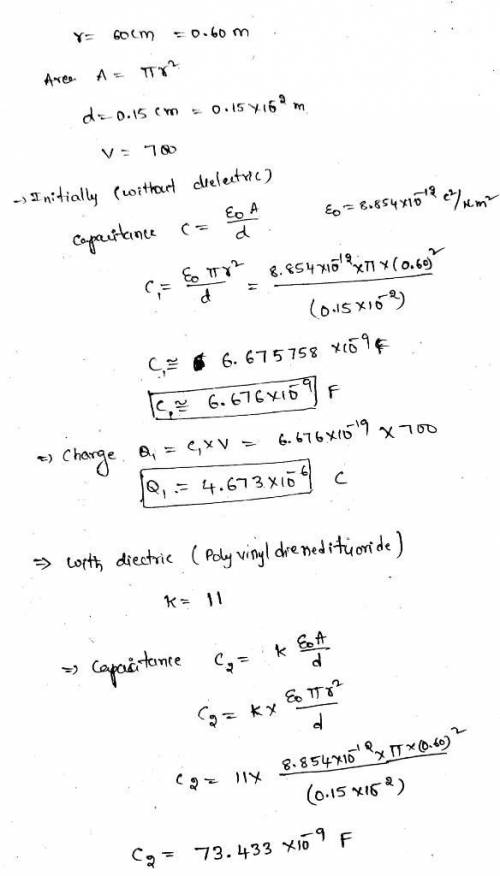 r = 60cm = 0.60 m
Area A = πr²
d = 0.15 cm = 0.15×10⁻² m
V = 700
→ Initially (without dielectric)
Capacitance C = ε₀A/d    ε₀ = 8.854×10⁻¹² C²/Nm²
C₁ = ε₀πr²/d = 8.854×10⁻¹²×π×(0.60)²/(0.15×10⁻²)
C₁ ≅ 6.675758 ×10⁻⁹ F
C₁ ≅ 6.676×10⁻⁹ F
⇒ Charge Q₁ = C₁×V = 6.676×10⁻¹⁹ × 700
Q₁ = 4.673×10⁻⁶ C
⇒ With diectric (Polyvinyldienedifluoride)
K = 11
⇒ Capacitance C₂ = K ε₀A/d
C₂ = K× ε₀πr²/d
C₂ = 11× 8.854×10⁻¹²×π×(0.60)²/(0.15×10⁻²)
C₂ = 73.433 ×10⁻⁹ F